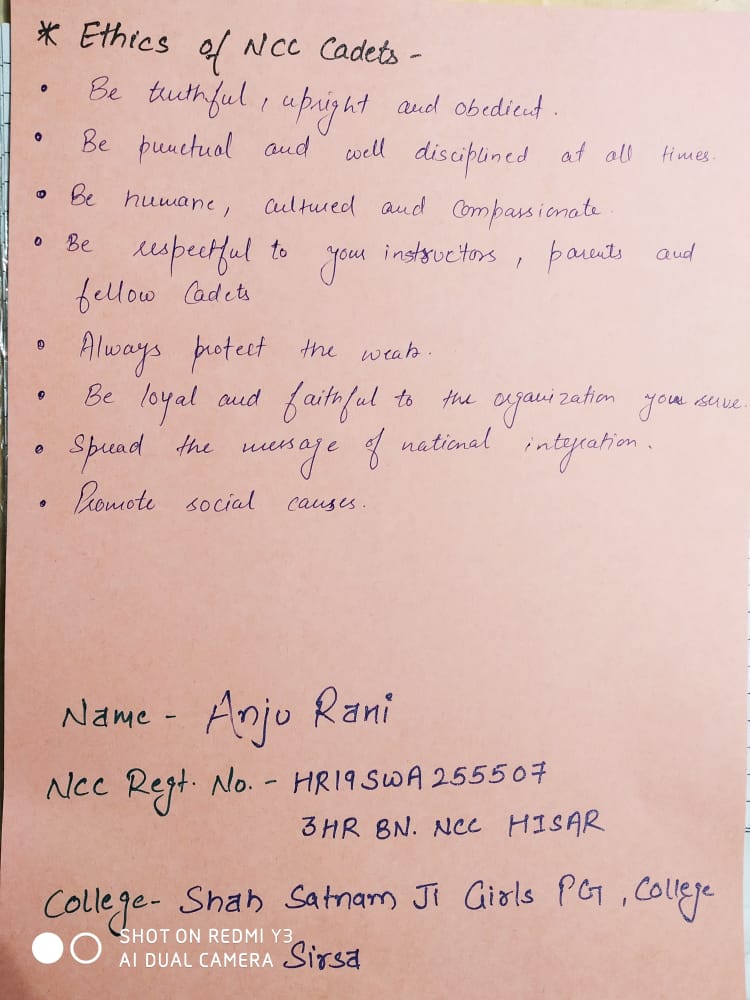 * Ethics of NCC Cadets -
• Be truthful, upright and obedient.
• Be punctual and well disciplined at all times.
• Be humane, cultured and compassionate.
• Be respectful to your instructors, parents and
fellow Cadets
• Always protect the weak.
• Be loyal and faithful to the organization your serve.
• Spread the message of national integration.
• Promote social causes.
Name - Anju Rani
NCC Regt. No. - HR19SWA255507
3HR BN. NCC HISAR
College - Shah Satnam Ji Girls PG, College
Sirsa
SHOT ON REDMI Y3
AI DUAL CAMERA